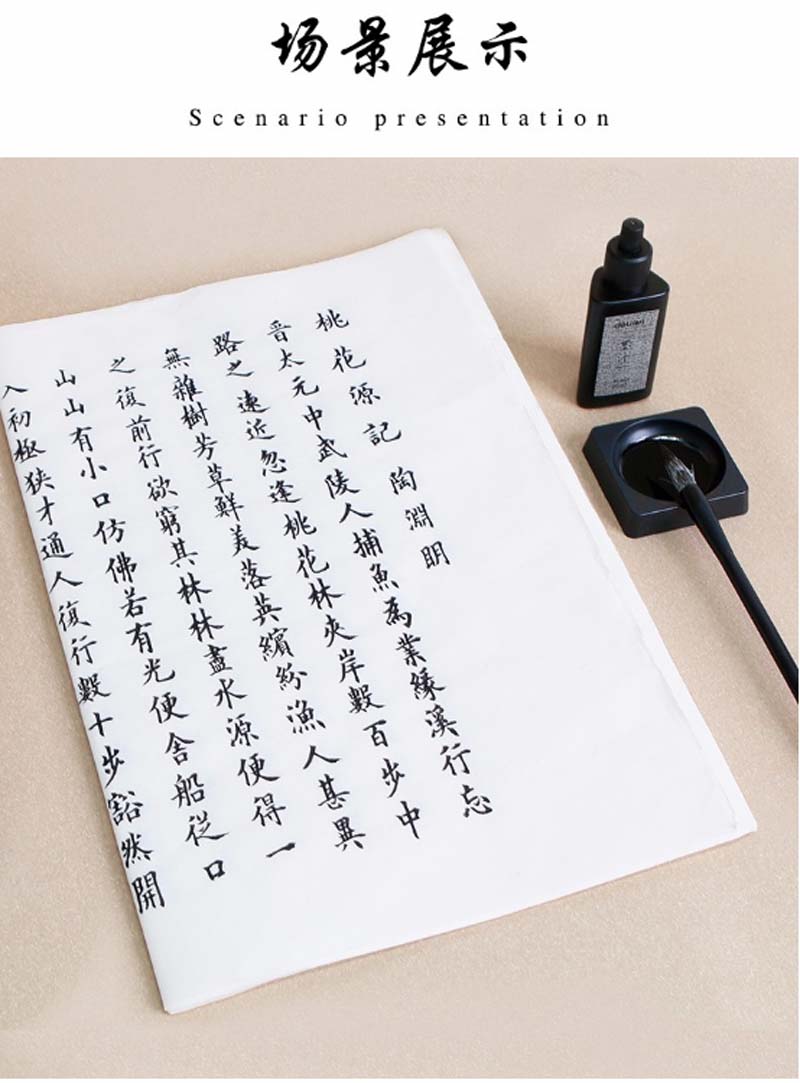 场景展示
Scenario presentation
桃花源記 陶淵明
晉太元中武陵人捕魚為業緣溪行忘
路之遠近忽逢桃花林夾岸數百步中
無雜樹芳草鮮美落英繽紛漁人甚異
之復前行欲窮其林林盡水源便得一
山山有小口仿佛若有光便舍船從口
入初極狹才通人復行數十步豁然開